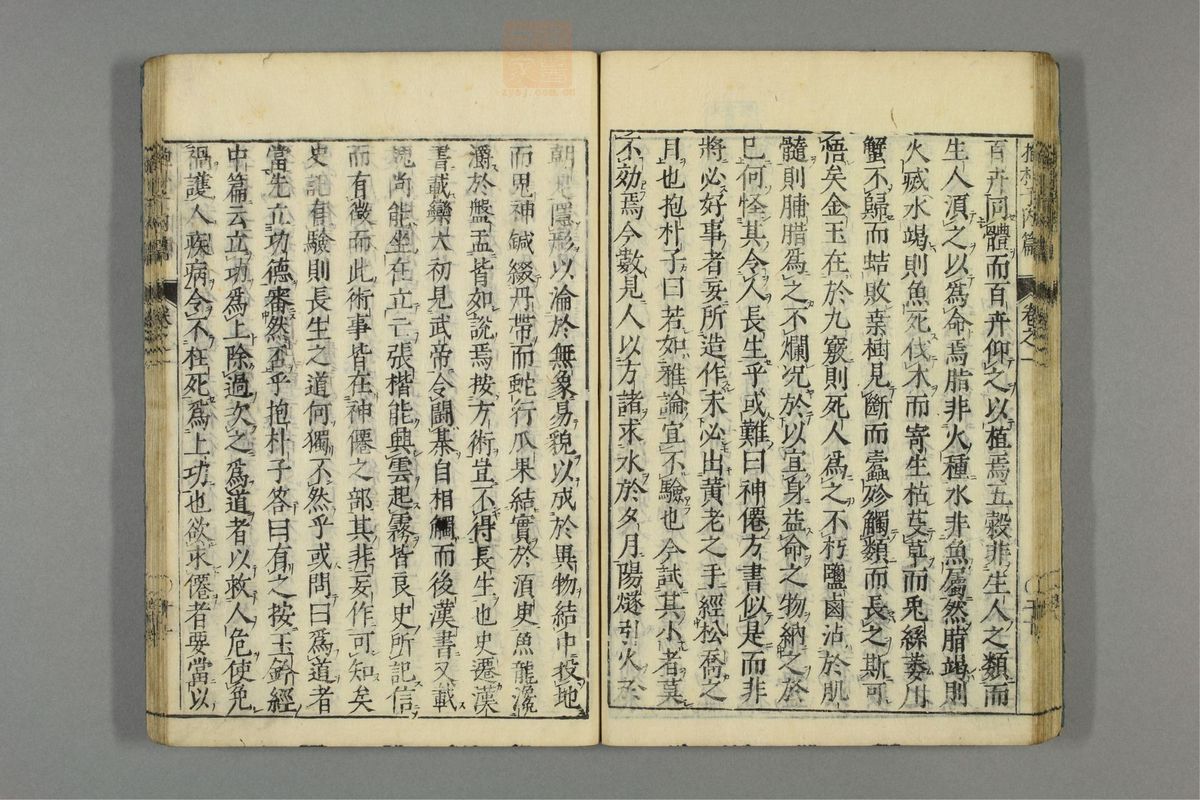 百卉同體而百卉仰之以植焉五穀非生人之類而
生人湏之以為命焉脂非火種水非魚屬然脂竭則
火烕水竭則魚死伐木而寄生枯芟草而兎絲萎川
蟹不歸而蛣敗桒樹見斷而蠧殄觸類而長之斯可
悟矣金玉在於九竅則死人為之不朽鹽鹵沾於肌
髓則脯腊為之不爛况於以宜身益命之物納之於
巳何怪其令人長生乎或難曰神僊方書似是而非
將必好事者妄所造作未必出黃老之手經松喬之
目也抱朴子曰若如雅論宜不驗也今試其小者莫
不効焉今數見人以方諸求水於夕月陽燧引火於
朝日隱形以淪於無象易貌以成於異物結巾投地
而兎神鍼綴丹帶而蛇行瓜果結實於湏臾魚龍瀺
灂於盤盂皆如說焉按
方術豈不得長生也史遷漢
書載欒大初見武帝令鬬棊自相觸而後漢書又載
魏尚能坐在立亡張楷能興雲起霧皆良史所記信
而有徵而此術事皆在神僊之部其非妄作可知矣
史記有驗則長生之道何獨不然乎或問曰為道者
當先立功德審然否乎抱朴子答曰有之按玉鈐經
中篇云立功為上除過次之為道者以救人危使免
禍護人疾病令不枉死為上功也欲求僊者要當以